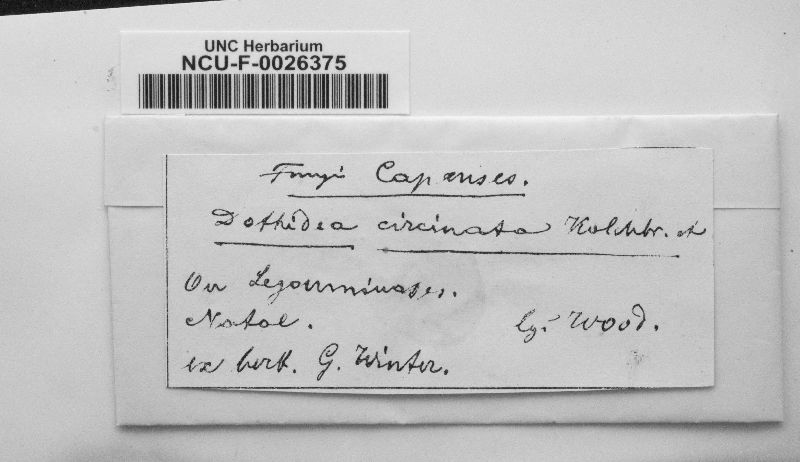 UNC Herbarium
NCU-F-0026375
Fungi Capenses.
Dothidea circinata Kalchbr. et
On Legouminoses.
Natal. lg. Wood.
ex herb. G. Winter.